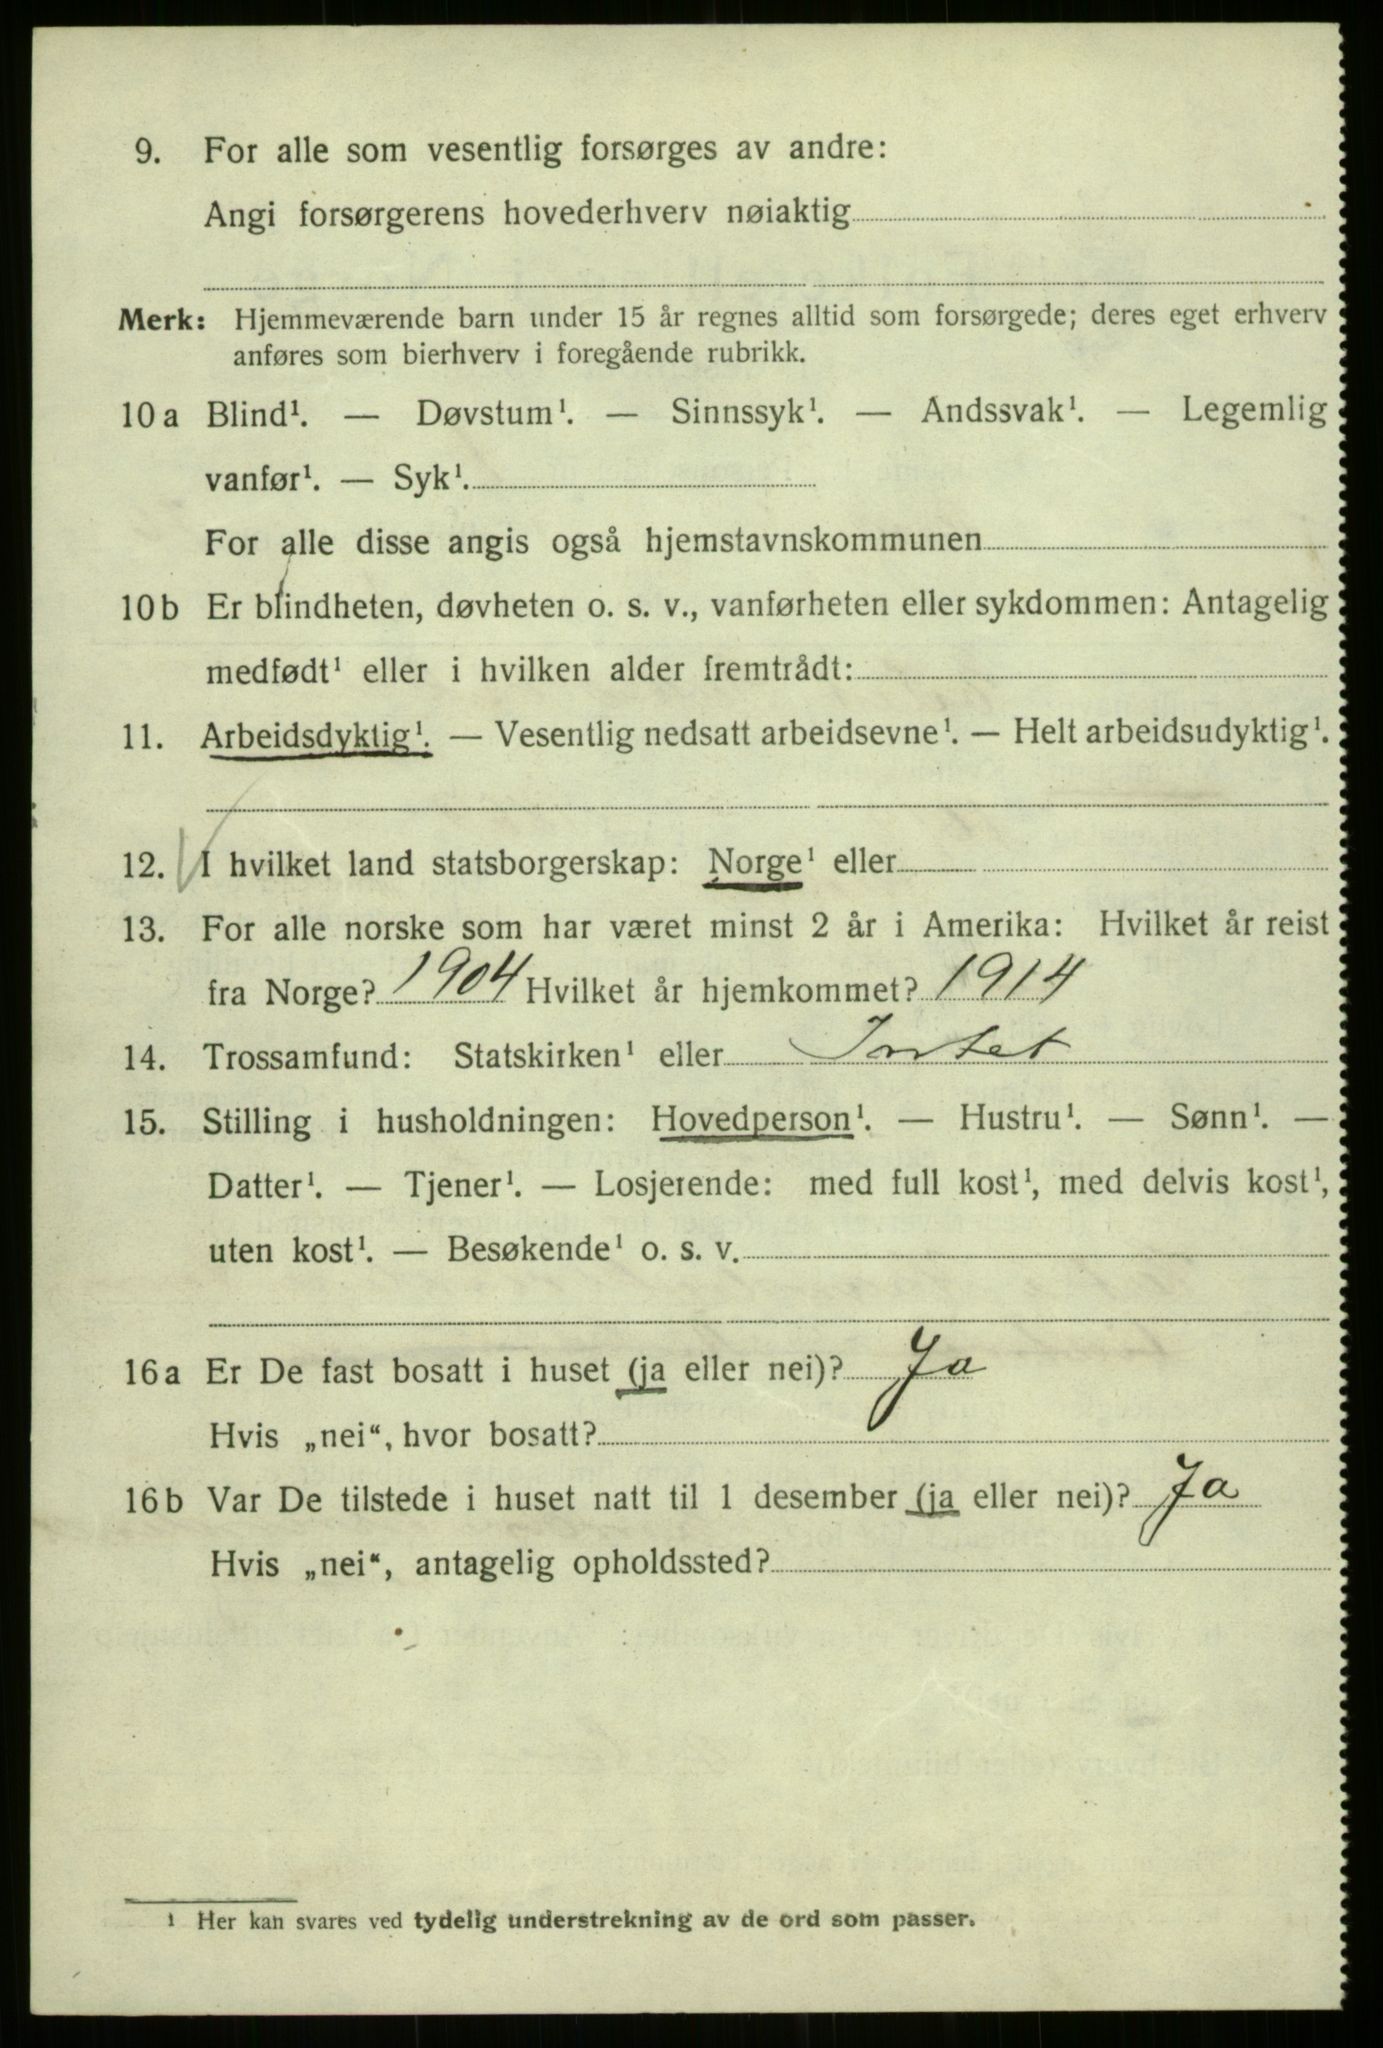 9. For alle som vesentlig forsørges av andre:
Angi forsørgerens hovederhverv nøiaktig
Merk: Hjemmeværende barn under 15 år regnes alltid som forsørgede; deres eget erhverv
anføres som bierhverv i foregående rubrikk.
10 a Blind¹. — Døvstum¹. — Sinnssyk¹. — Andssvak¹. — Legemlig
vanfør¹. — Syk¹.
For alle disse angis også hjemstavnskommunen
10 b Er blindheten, døvheten o. s. v., vanførheten eller sykdommen: Antagelig
medfødt¹ eller i hvilken alder fremtrådt:
11. Arbeidsdyktig¹. — Vesentlig nedsatt arbeidsevne¹. — Helt arbeidsudyktig¹.
12. I hvilket land statsborgerskap: Norge¹ eller
13. For alle norske som har været minst 2 år i Amerika: Hvilket år reist
fra Norge? 1904 Hvilket år hjemkommet? 1914
14. Trossamfund: Statskirken¹ eller Intet
15. Stilling i husholdningen: Hovedperson¹. — Hustru¹. — Sønn¹. —
Datter¹. — Tjener¹. — Losjerende: med full kost¹, med delvis kost¹,
uten kost¹. — Besøkende¹ o. s. v.
16 a Er De fast bosatt i huset (ja eller nei)? Ja
Hvis „nei“, hvor bosatt?
16 b Var De tilstede i huset natt til 1 desember (ja eller nei)? Ja
Hvis „nei“, antagelig opholdssted?
¹ Her kan svares ved tydelig understrekning av de ord som passer.